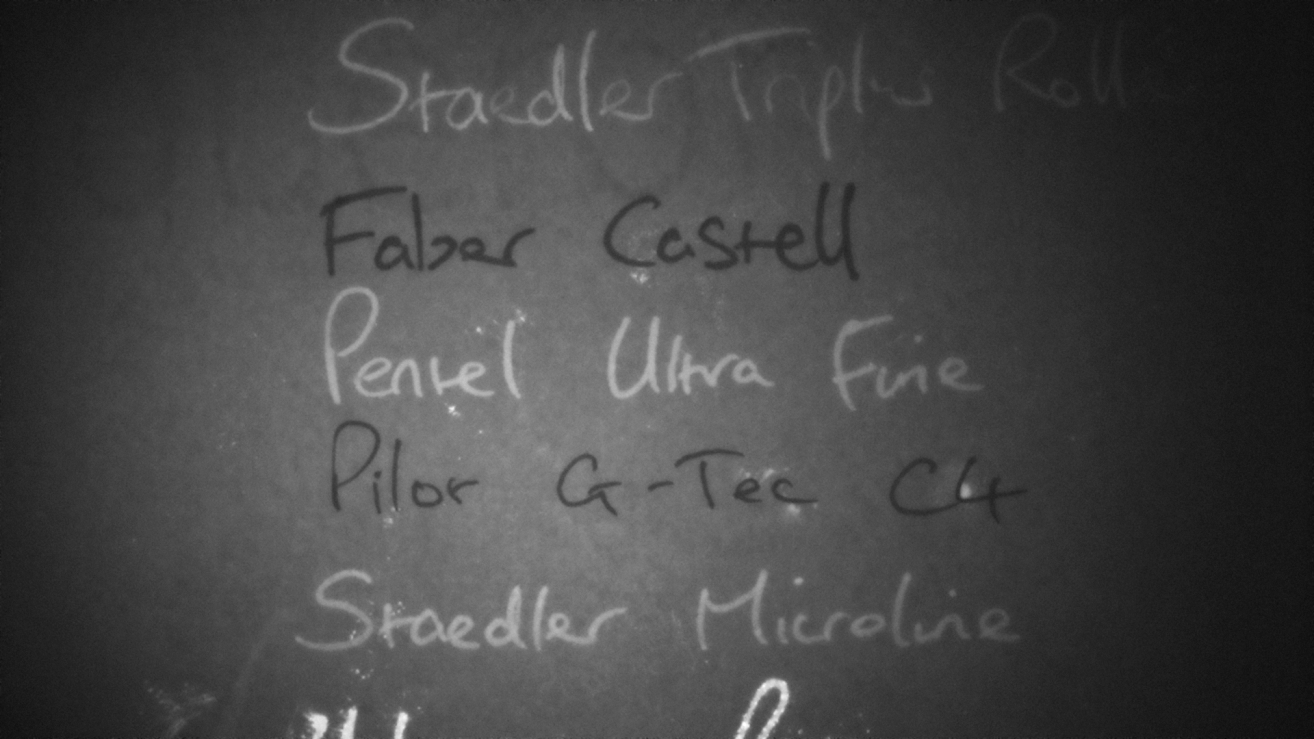 Staedler Triplus Rolle
Faber Castell
Pentel Ultra Fine
Pilot G-Tec C4
Staedler Microline